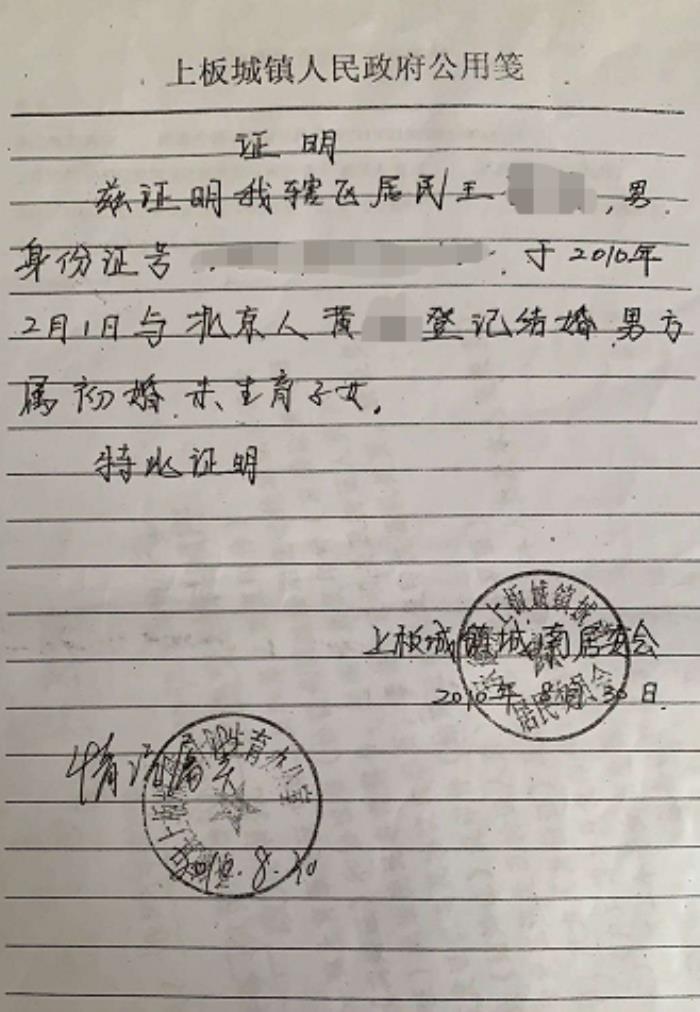 上板城镇人民政府公用笺
证明
兹证明我辖区居民王 ,男
身份证号 . 于2010年
2月1日与北京人黄 登记结婚 男方
属初婚 未生育子女.
特此证明
上板城镇城南居委会
上板城镇城
居民委员会
2010年8月30日
情况属实
生育办公室
2010.8.30